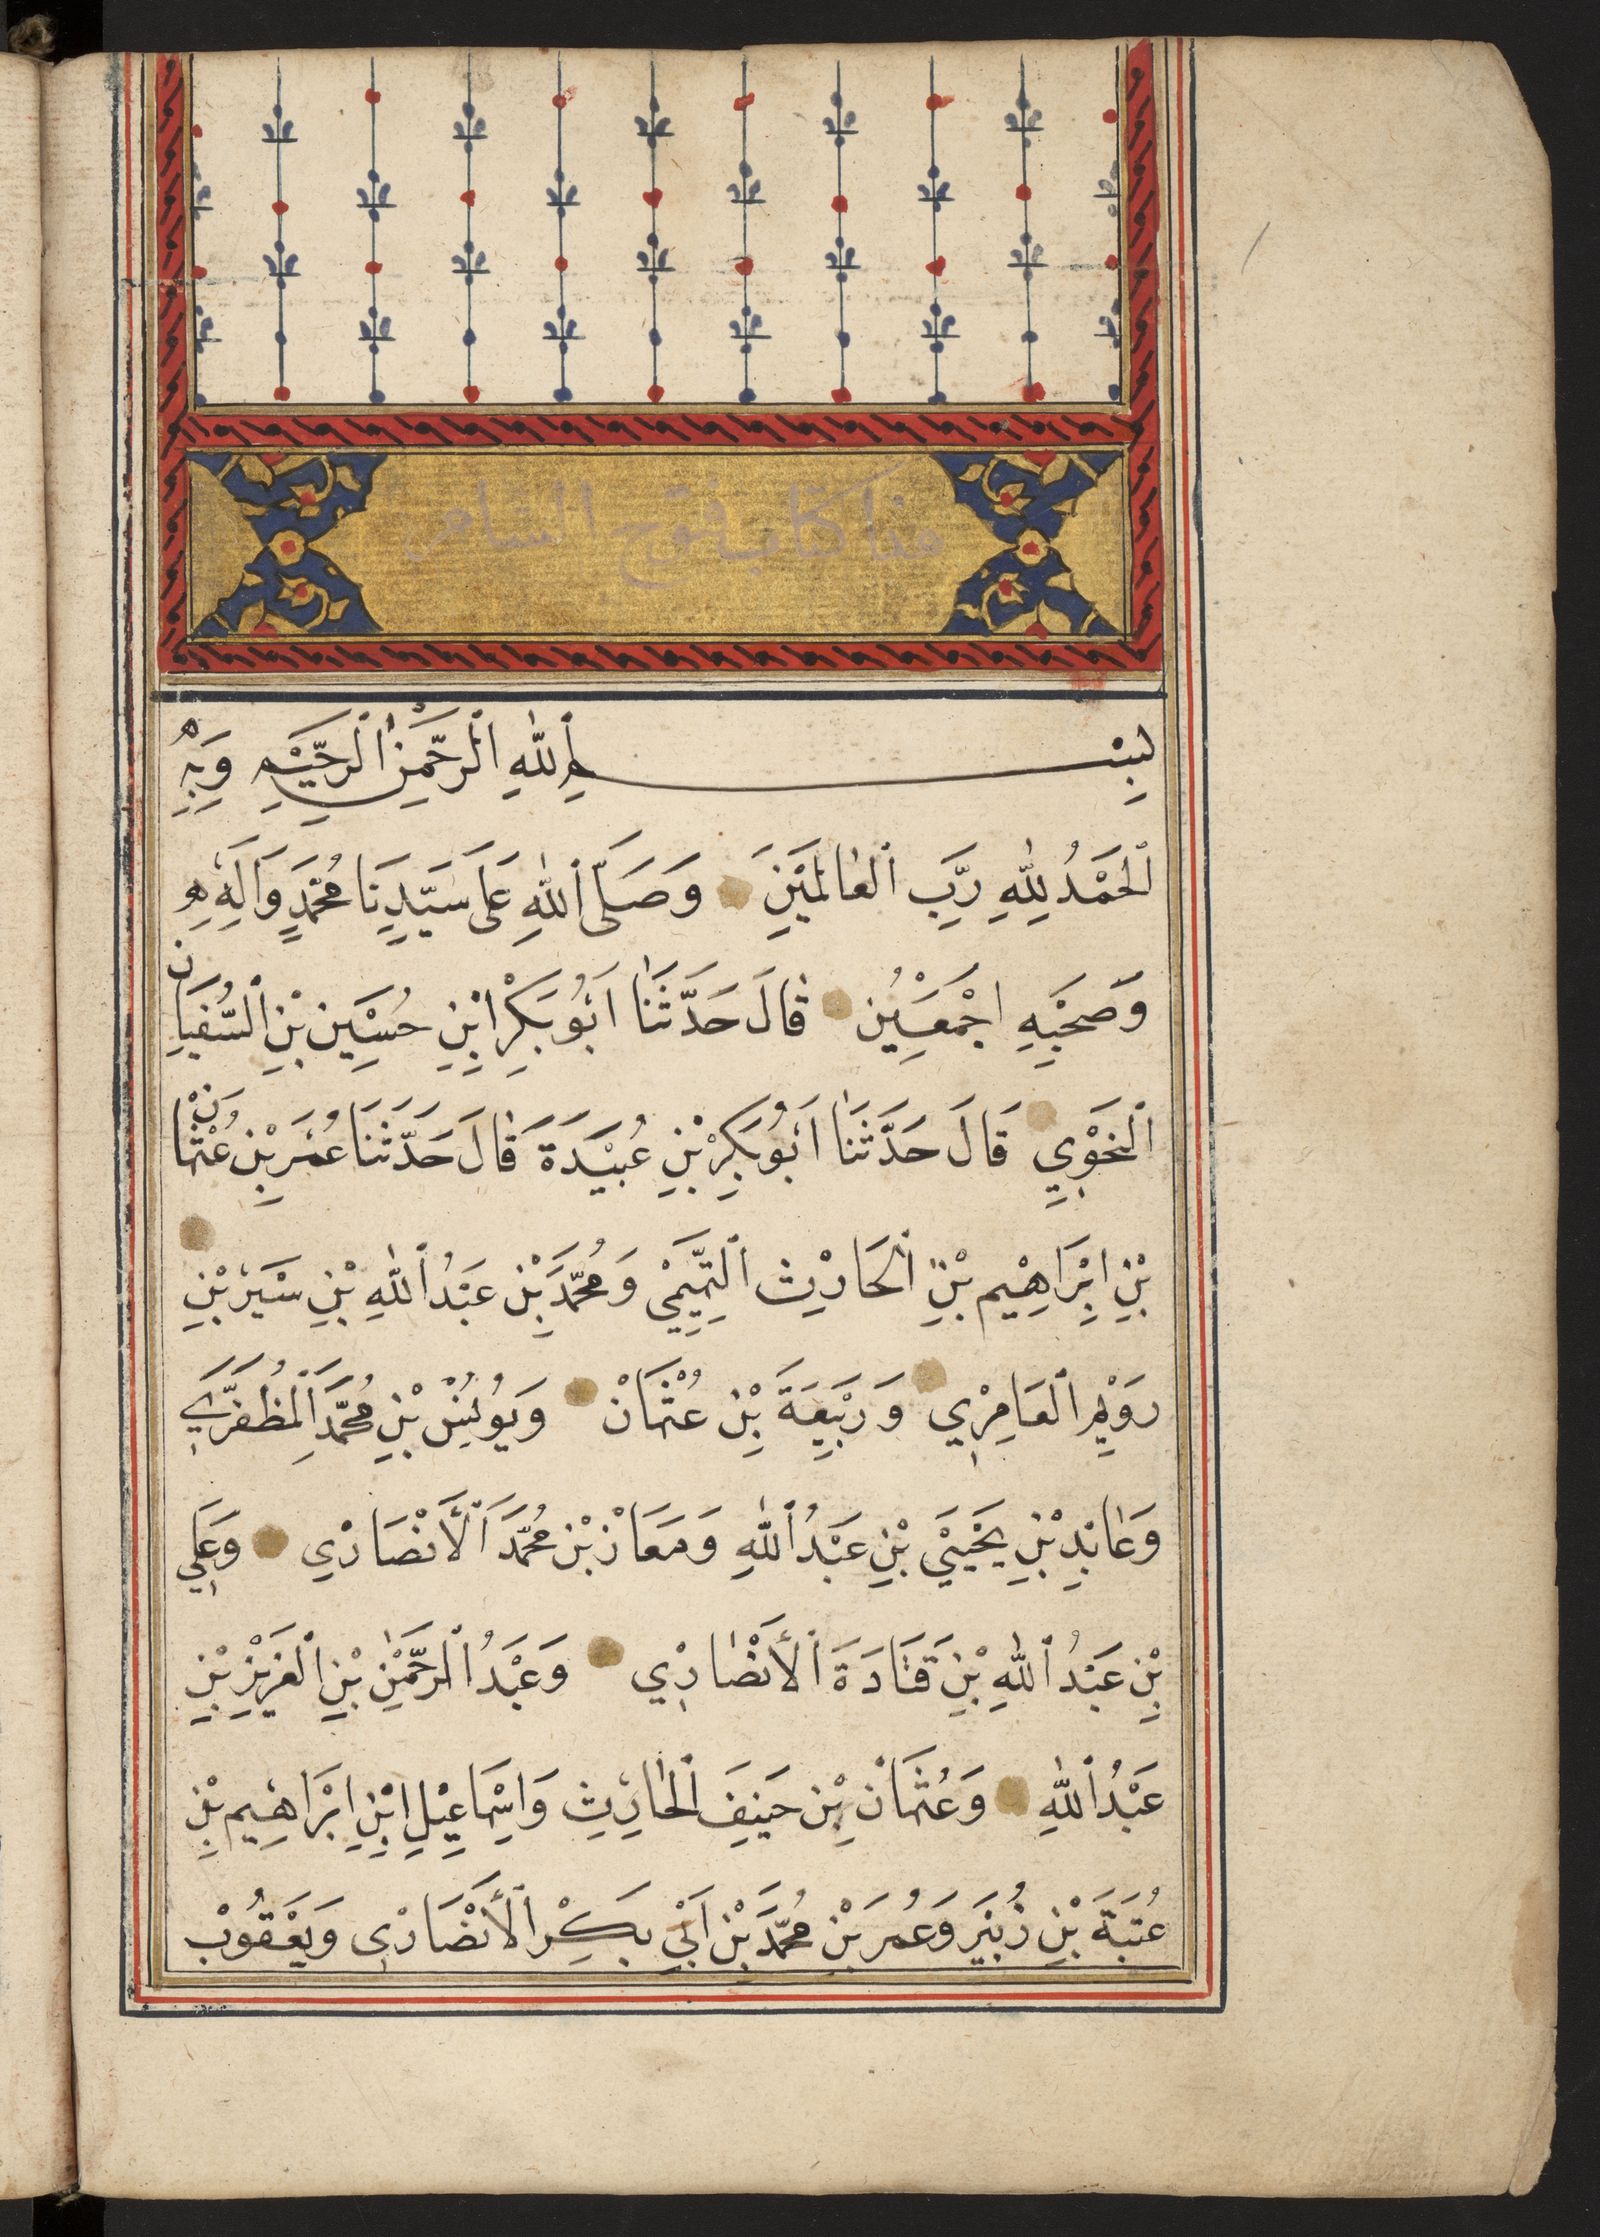 هذا كتاب فتوح الشام
بِسْمِ ٱللّٰهِ ٱلرَّحْمٰنِ ٱلرَّحِيْمِ وَبِهِ
ٱلحَمْدُ لِلّٰهِ رَبِّ ٱلعَالَمِيْنَ وَصَلَّى ٱللّٰهِ عَلَى سَيِّدِنَا مُحَمَّدٍ وَاَلِهِ
وَصَحْبِهِ اجْمَعِيْن قَالَ حَدَّثَنَا اَبُو بَكِرْ ابْنِ حُسَيِن بْنِ ٱلسُّفْيَان
ٱلنَحَوْيِ قَالَ حَدَّثَنَا اَبُو بَكِرْ بْنِ عُبَيْدَةَ قَالَ حَدَّثَنَا عُمَر بْنِ عُثْمَان
بْنِ اِبْرَاهِيْم بْنِ ٱلحَارِث ٱلتَّمِيْمَيْ وَمُحَمَّد بْنِ عَبْدُ ٱللّٰهِ بْنِ سَيْرَ بْنِ
رَوَيْم ٱلعَامِرْيِ وَرَبْيِعَةَ بْنِ عُثْمَانْ وَيُونِسْ بْنِ مُحَمَّدَ ٱلمُظَفَّرَيِ
وَعَابِدِ بْنِ يَحْيَيْ بْنِ عَبْدُ ٱللّٰهِ وَمَعَاذْ بْنِ مُحَمَّدَ ٱلأَنْصَارْيِ وَعَلِي
بْنِ عَبْدُ ٱللّٰهِ بْنِ قَتَادَةَ ٱلأَنْصَارِيْ وَعَبْدُ ٱلرَّحْمٰنِ بْنِ ٱلعَزِيْزِ بْنِ
عَبْدُ ٱللّٰهِ وَعُثْمَانْ بْنِ حَنِيفَ ٱلحَارِثِ وَاِسْمَاعِيْلِ ابْنِ اِبْرَاهِيم بْنِ
عُتْبَةَ بْنِ زُبَيَر وَعُمَر بْنِ مُحَمَّدَ بْنِ اَبْيِ بَكِرْ ٱلأَنْصَارْيِ وَيَعْقُوْب